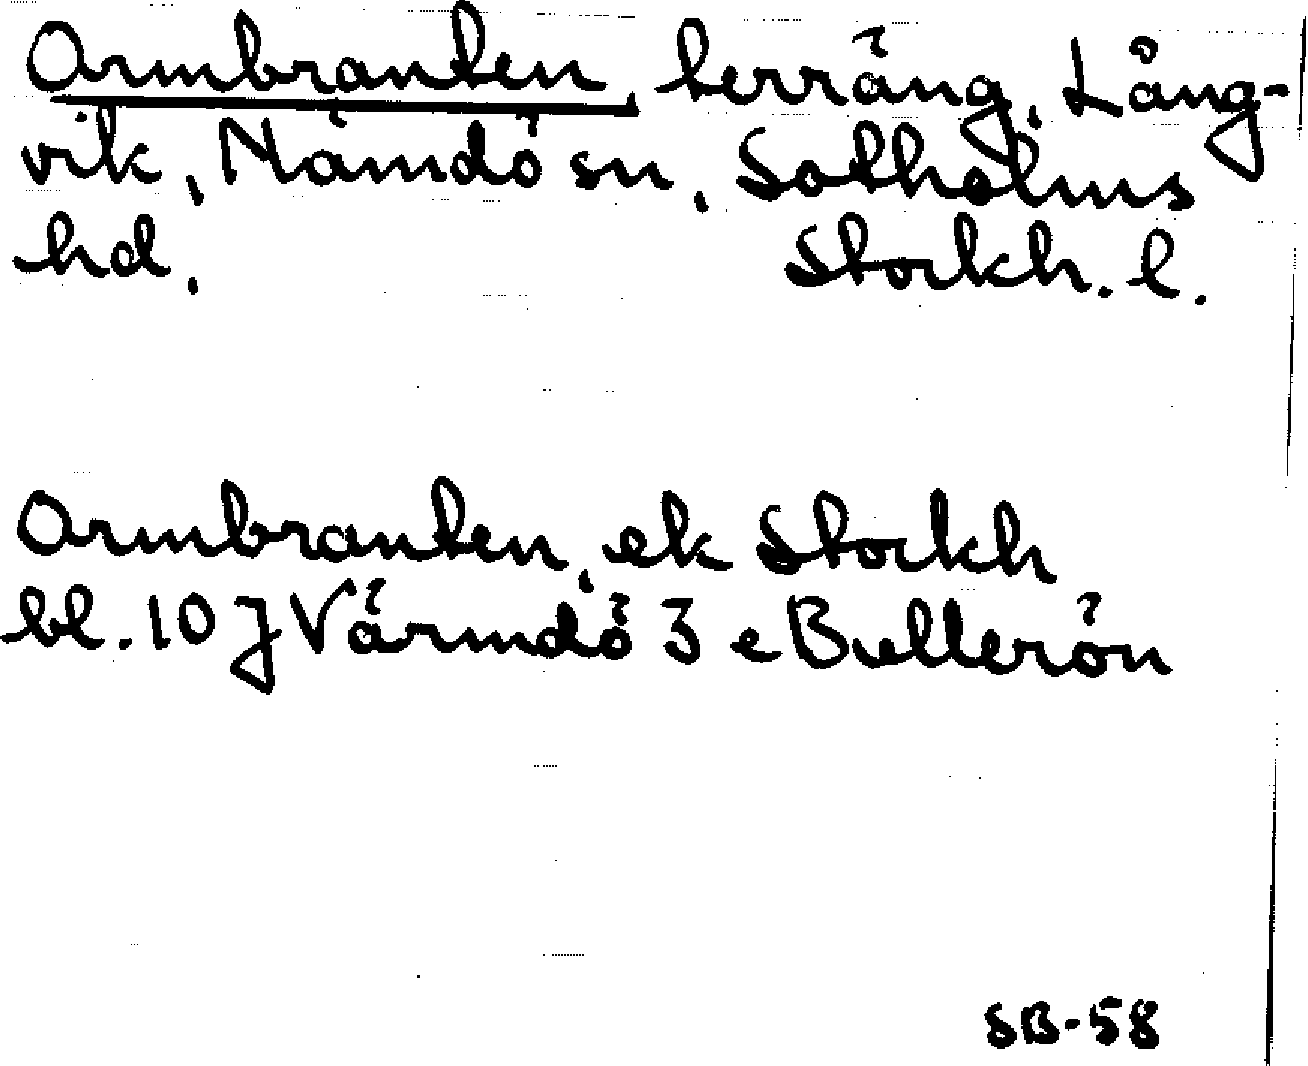 Ormbranten, terräng, Lång-
vik, Nämdö sn, Sotholms
hd, Stockh. l.
Ormbranten, ek Stockh
bl. 10 J Värmdö 3 e Bullerön
SB-58